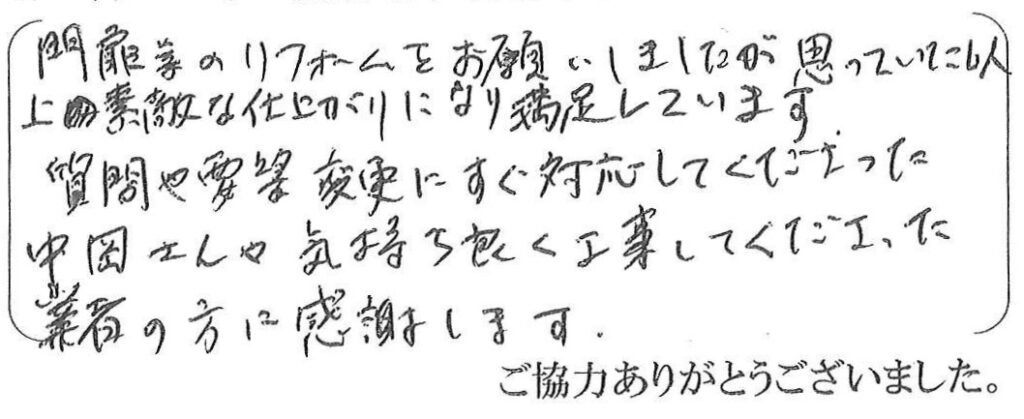 門扉等のリフォームをお願いしましたが思っていた以
上に素敵な仕上がりになり満足しています
質問や要望変更にすぐ対応してくださった
中岡さんや気持ち良く工事してくださった
業者の方に感謝します.
ご協力ありがとうございました。